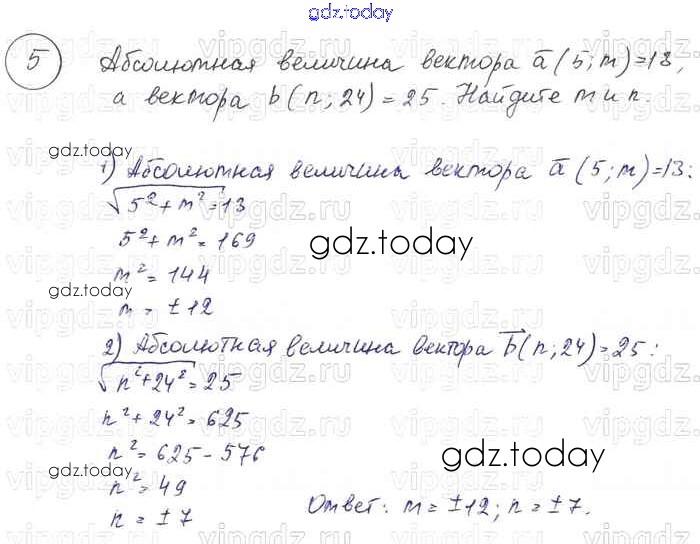 gdz.today
5 Абсолютная величина вектора a̅ (5; m) = 13,
а вектора b (n; 24) = 25. Найдите m и n.
gdz.today
1) Абсолютная величина вектора a̅ (5; m) = 13:
√5² + m² = 13
5² + m² = 169
gdz.today
m² = 144
gdz.today
m = ± 12
2) Абсолютная величина вектора b⃗ (n; 24) = 25:
√n² + 24² = 25
n² + 24² = 625
n² = 625 - 576
gdz.today
gdz.today
n² = 49
Ответ: m = ±12; n = ±7.
n = ± 7